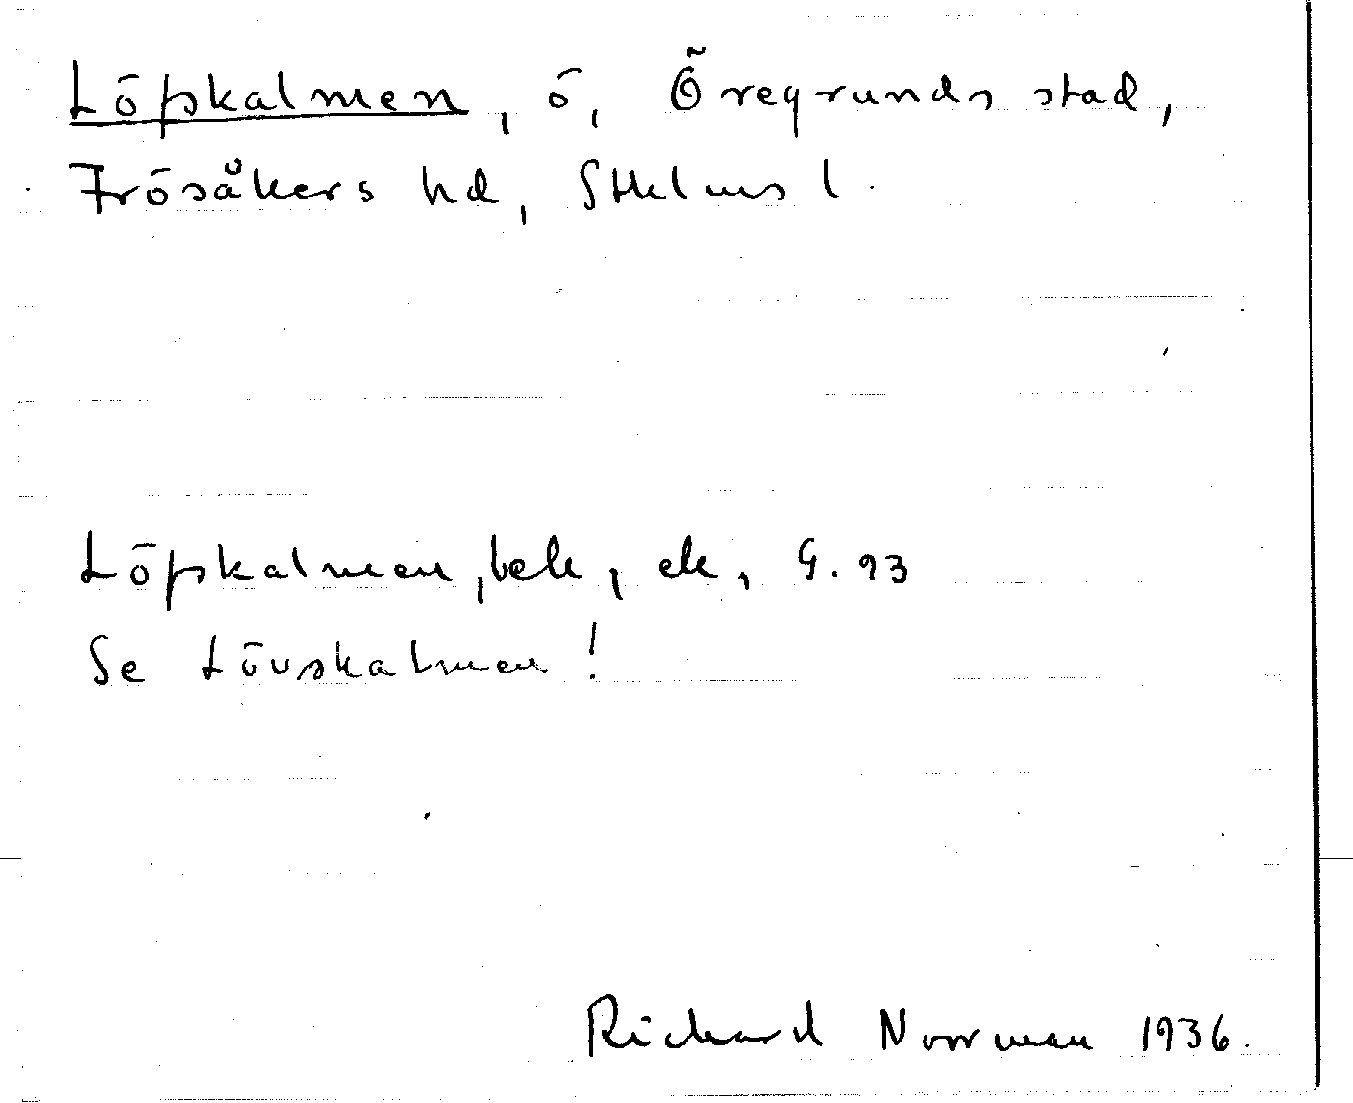 Löpskalmen, ö, Öregrunds stad,
Frösåkers hd, Sthlms l.
Löpskalmen, bek, ek, G. 93
Se Lövskalmen!
Richard Norrman 1936.